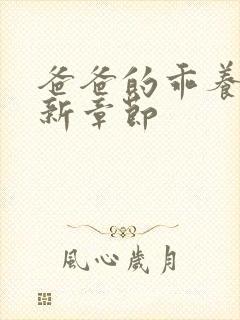 爸爸的乖養
新章節
風心歲月